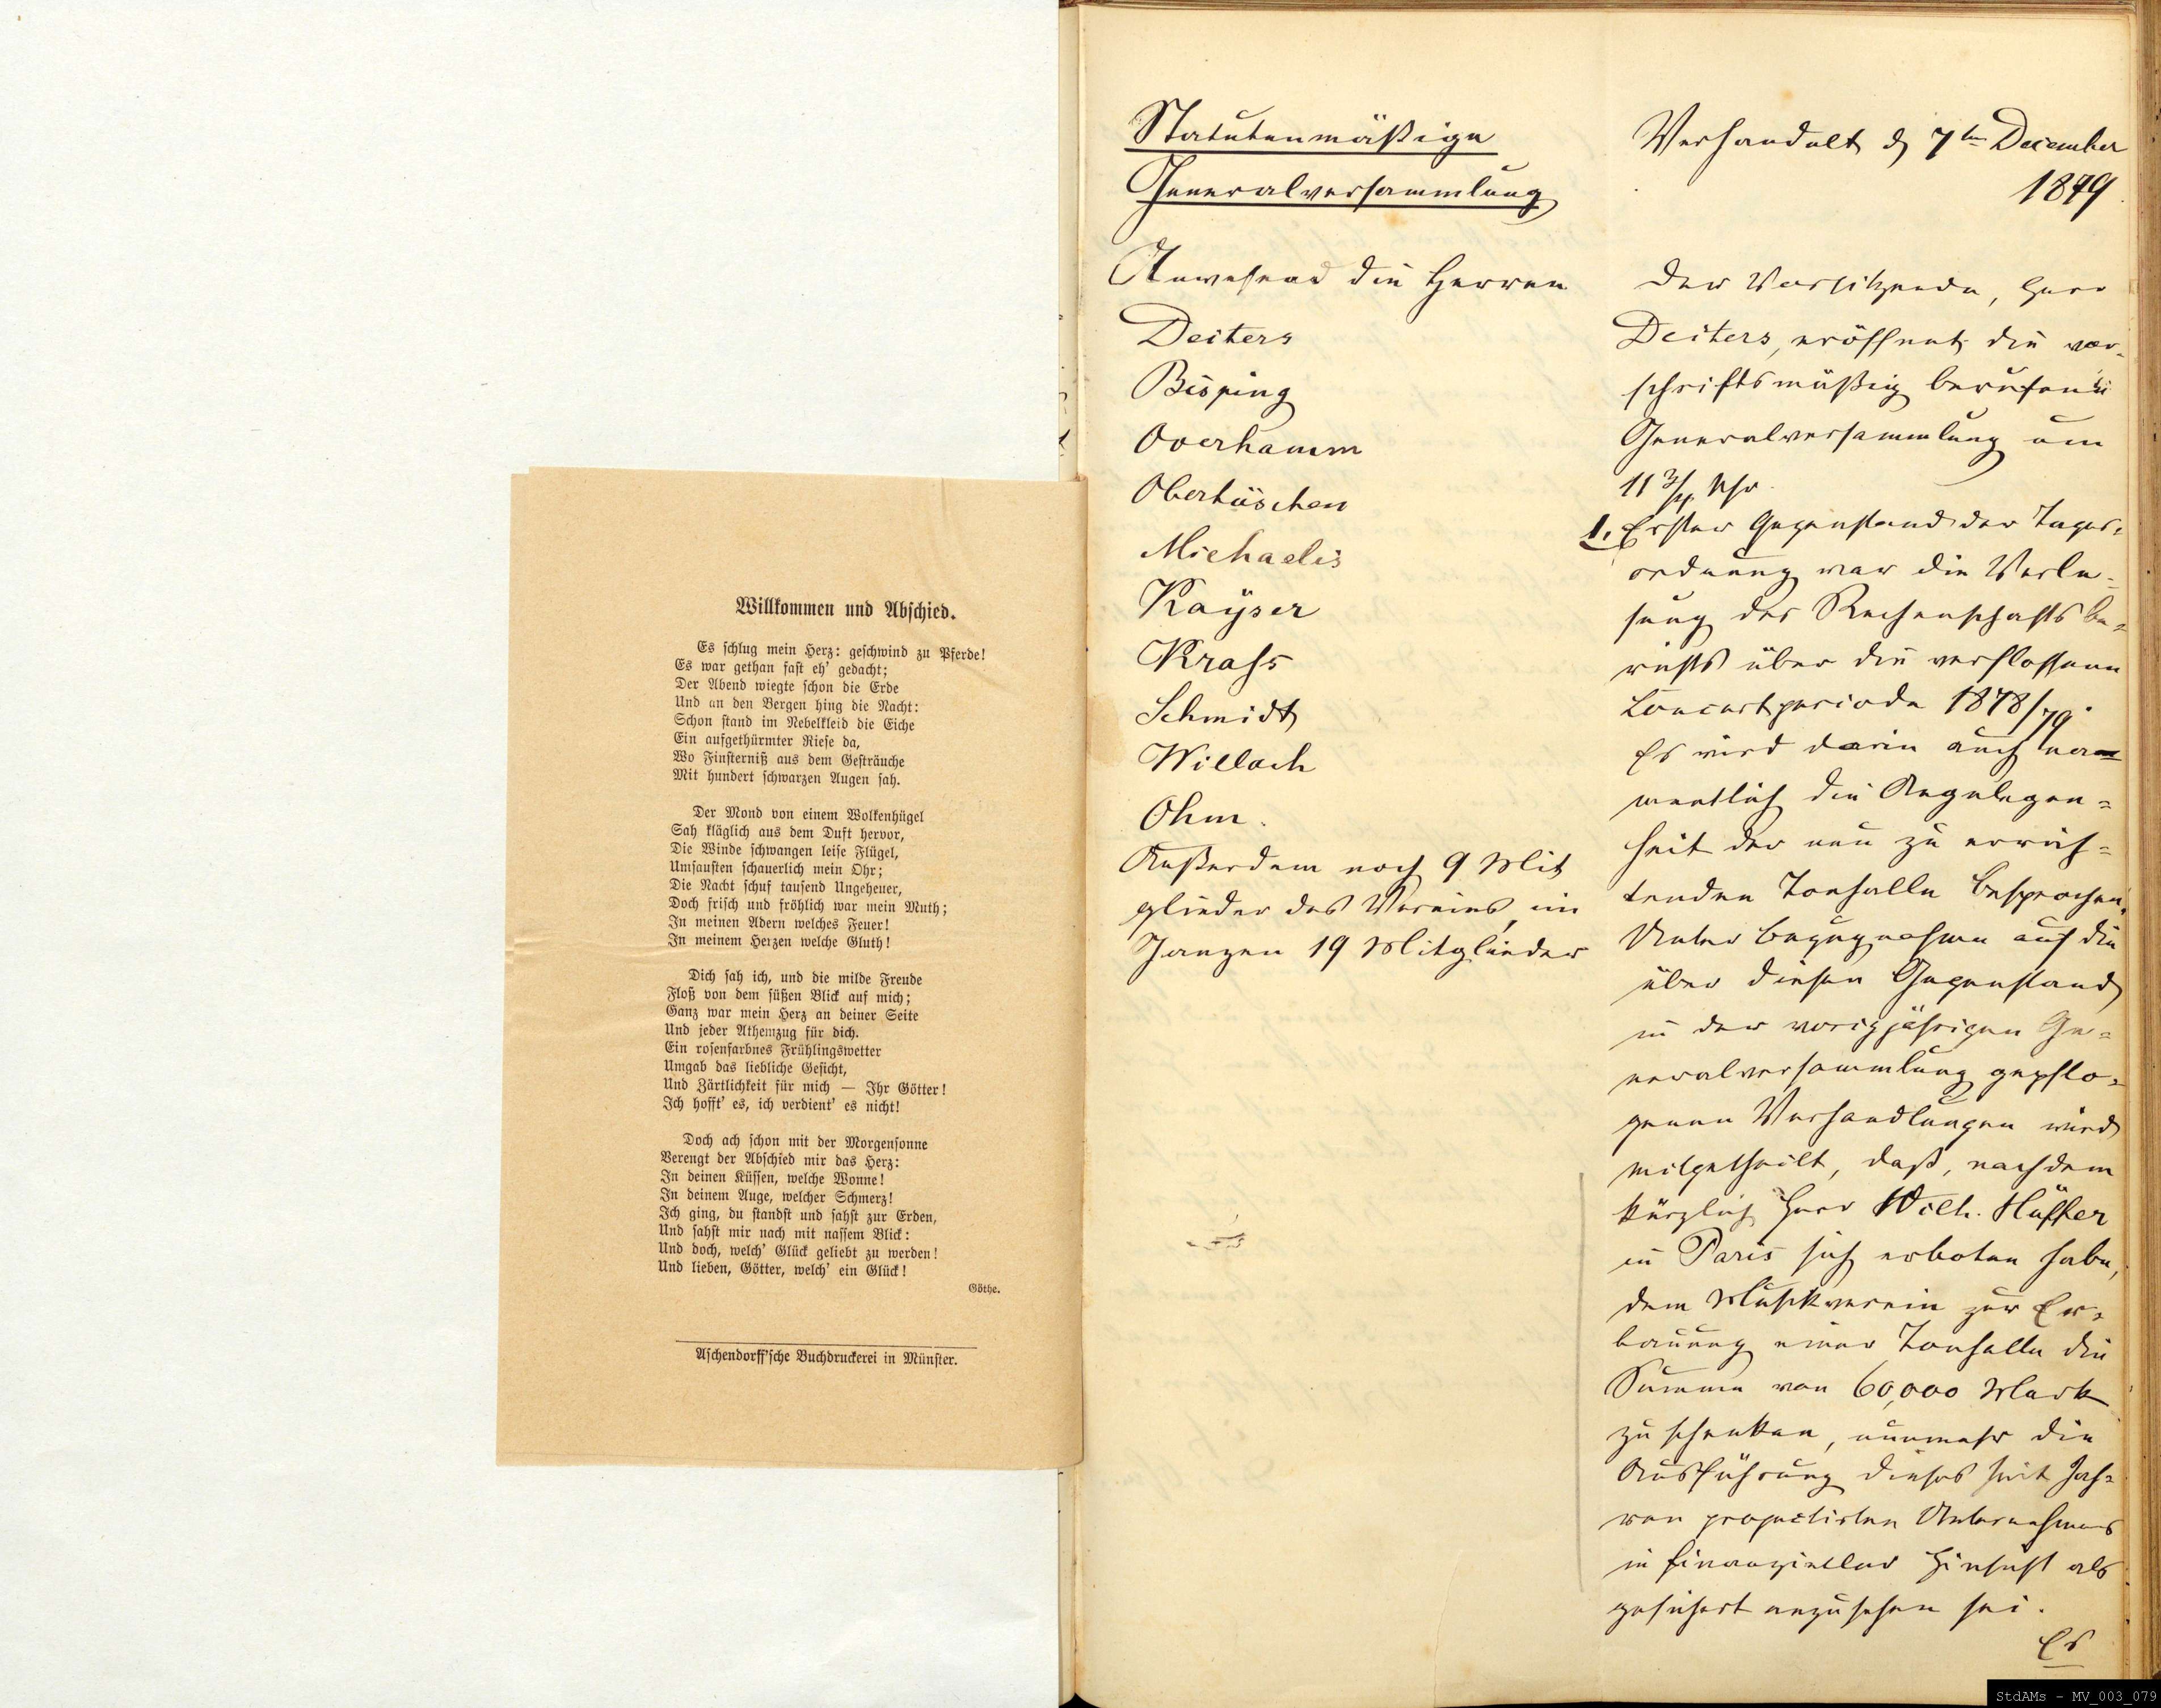 Willkommen und Abschied.
Es schlug mein Herz: geschwind zu Pferde!
Es war gethan fast eh' gedacht;
Der Abend wiegte schon die Erde
Und an den Bergen hing die Nacht:
Schon stand im Nebelkleid die Eiche
Ein aufgethürmter Riese da,
Wo Finsterniß aus dem Gesträuche
Mit hundert schwarzen Augen sah.
Der Mond von einem Wolkenhügel
Sah kläglich aus dem Duft hervor,
Die Winde schwangen leise Flügel,
Umsausten schauerlich mein Ohr;
Die Nacht schuf tausend Ungeheuer,
Doch frisch und fröhlich war mein Muth;
In meinen Adern welches Feuer!
In meinem Herzen welche Gluth!
Dich sah ich, und die milde Freude
Floß von dem süßen Blick auf mich;
Ganz war mein Herz an deiner Seite
Und jeder Athemzug für dich.
Ein rosenfarbnes Frühlingswetter
Umgab das liebliche Gesicht,
Und Zärtlichkeit für mich — Ihr Götter!
Ich hofft' es, ich verdient' es nicht!
Doch ach schon mit der Morgensonne
Verengt der Abschied mir das Herz:
In deinen Küssen, welche Wonne!
In deinem Auge, welcher Schmerz!
Ich ging, du standst und sahst zur Erden,
Und sahst mir nach mit nassem Blick:
Und doch, welch' Glück geliebt zu werden!
Und lieben, Götter, welch' ein Glück!
Göthe.
Aschendorff'sche Buchdruckerei in Münster.
Statutenmäßige
Generalversammlung
Anwesend die Herren
Deiters
Bisping
Overhamm
Obertüschen
Michaelis
Kayser
Krass
Schmidt
Willach
Ohm.
Außerdem noch 9 Mit
glieder des Vereins, im
Ganzen 19 Mitglieder
Verhandelt d 7ten December
1879
Der Vorsitzende, Herr
Deiters, eröffnet die vor-
schriftsmäßig berufene
Generalversammlung um
11 3/4 Uhr.
1. Erster Gegenstand der Tages-
ordnung war die Verle-
sung des Rechenschaftsbe-
richts über die verflossene
Concertperiode 1878/79.
Es wird darin auch na-
mentlich die Angelegen-
heit der neu zu errich-
tenden Tonhalle besprochen.
Unter Bezugnahme auf die
über diesen Gegenstand
in der vorigjährigen Ge-
neralversammlung gepflo-
genen Verhandlungen wird
mitgetheilt, daß, nachdem
kürzlich Herr Wilh. Hüffer
in Paris sich erboten habe,
dem Musikverein zur Er-
bauung einer Tonhalle die
Summe von 60,000 Mark
zu schenken, nunmehr die
Ausführung dieses seit Jah-
ren projectirten Unternehmens
in finanzieller Hinsicht als
gesichert anzusehen sei.
Es
StdAMs - MV_003_079